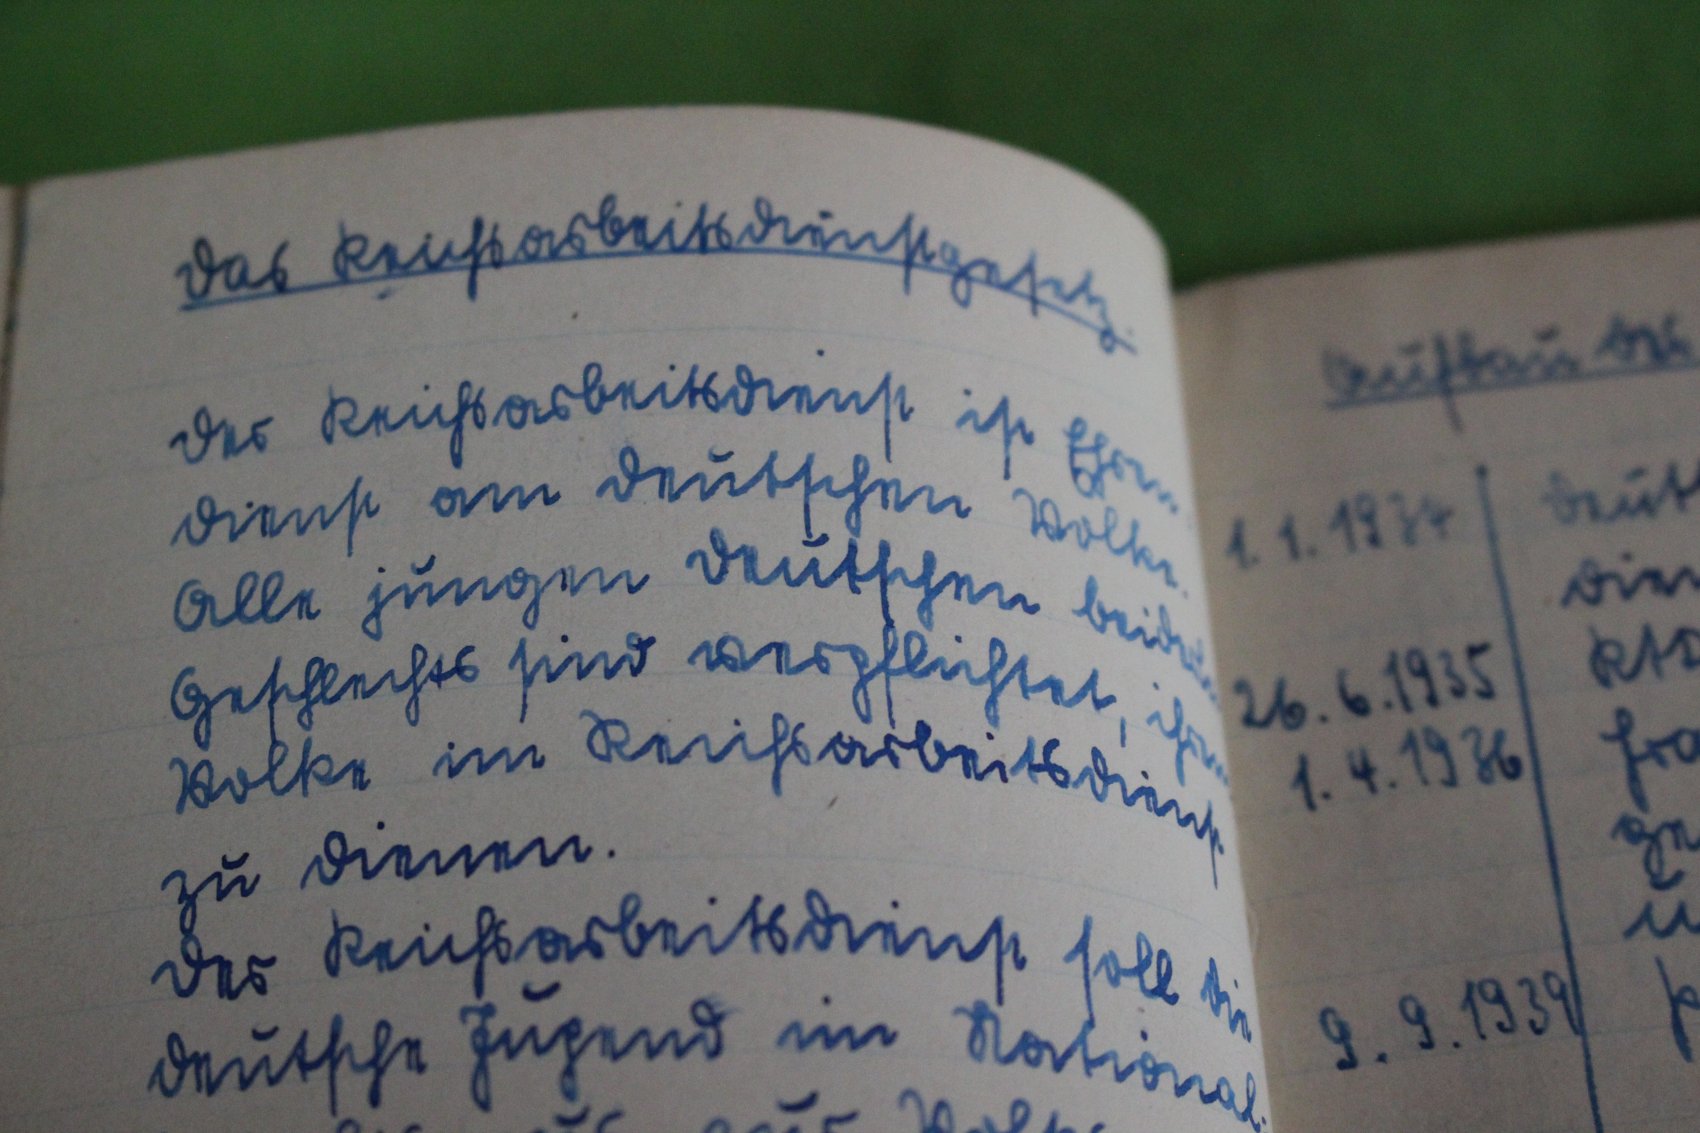 Das Reichsarbeitsdienstgesetz.
Der Reichsarbeitsdienst ist Ehren-
dienst am deutschen Volke.
Alle jungen Deutschen beiderlei
Geschlechts sind verpflichtet, ihrem
Volke im Reichsarbeitsdienst
zu dienen.
Der Reichsarbeitsdienst soll die
deutsche Jugend im National-
Volks
Aufbau des
1.1.1934
26.6.1935
1.4.1936
9.9.1939